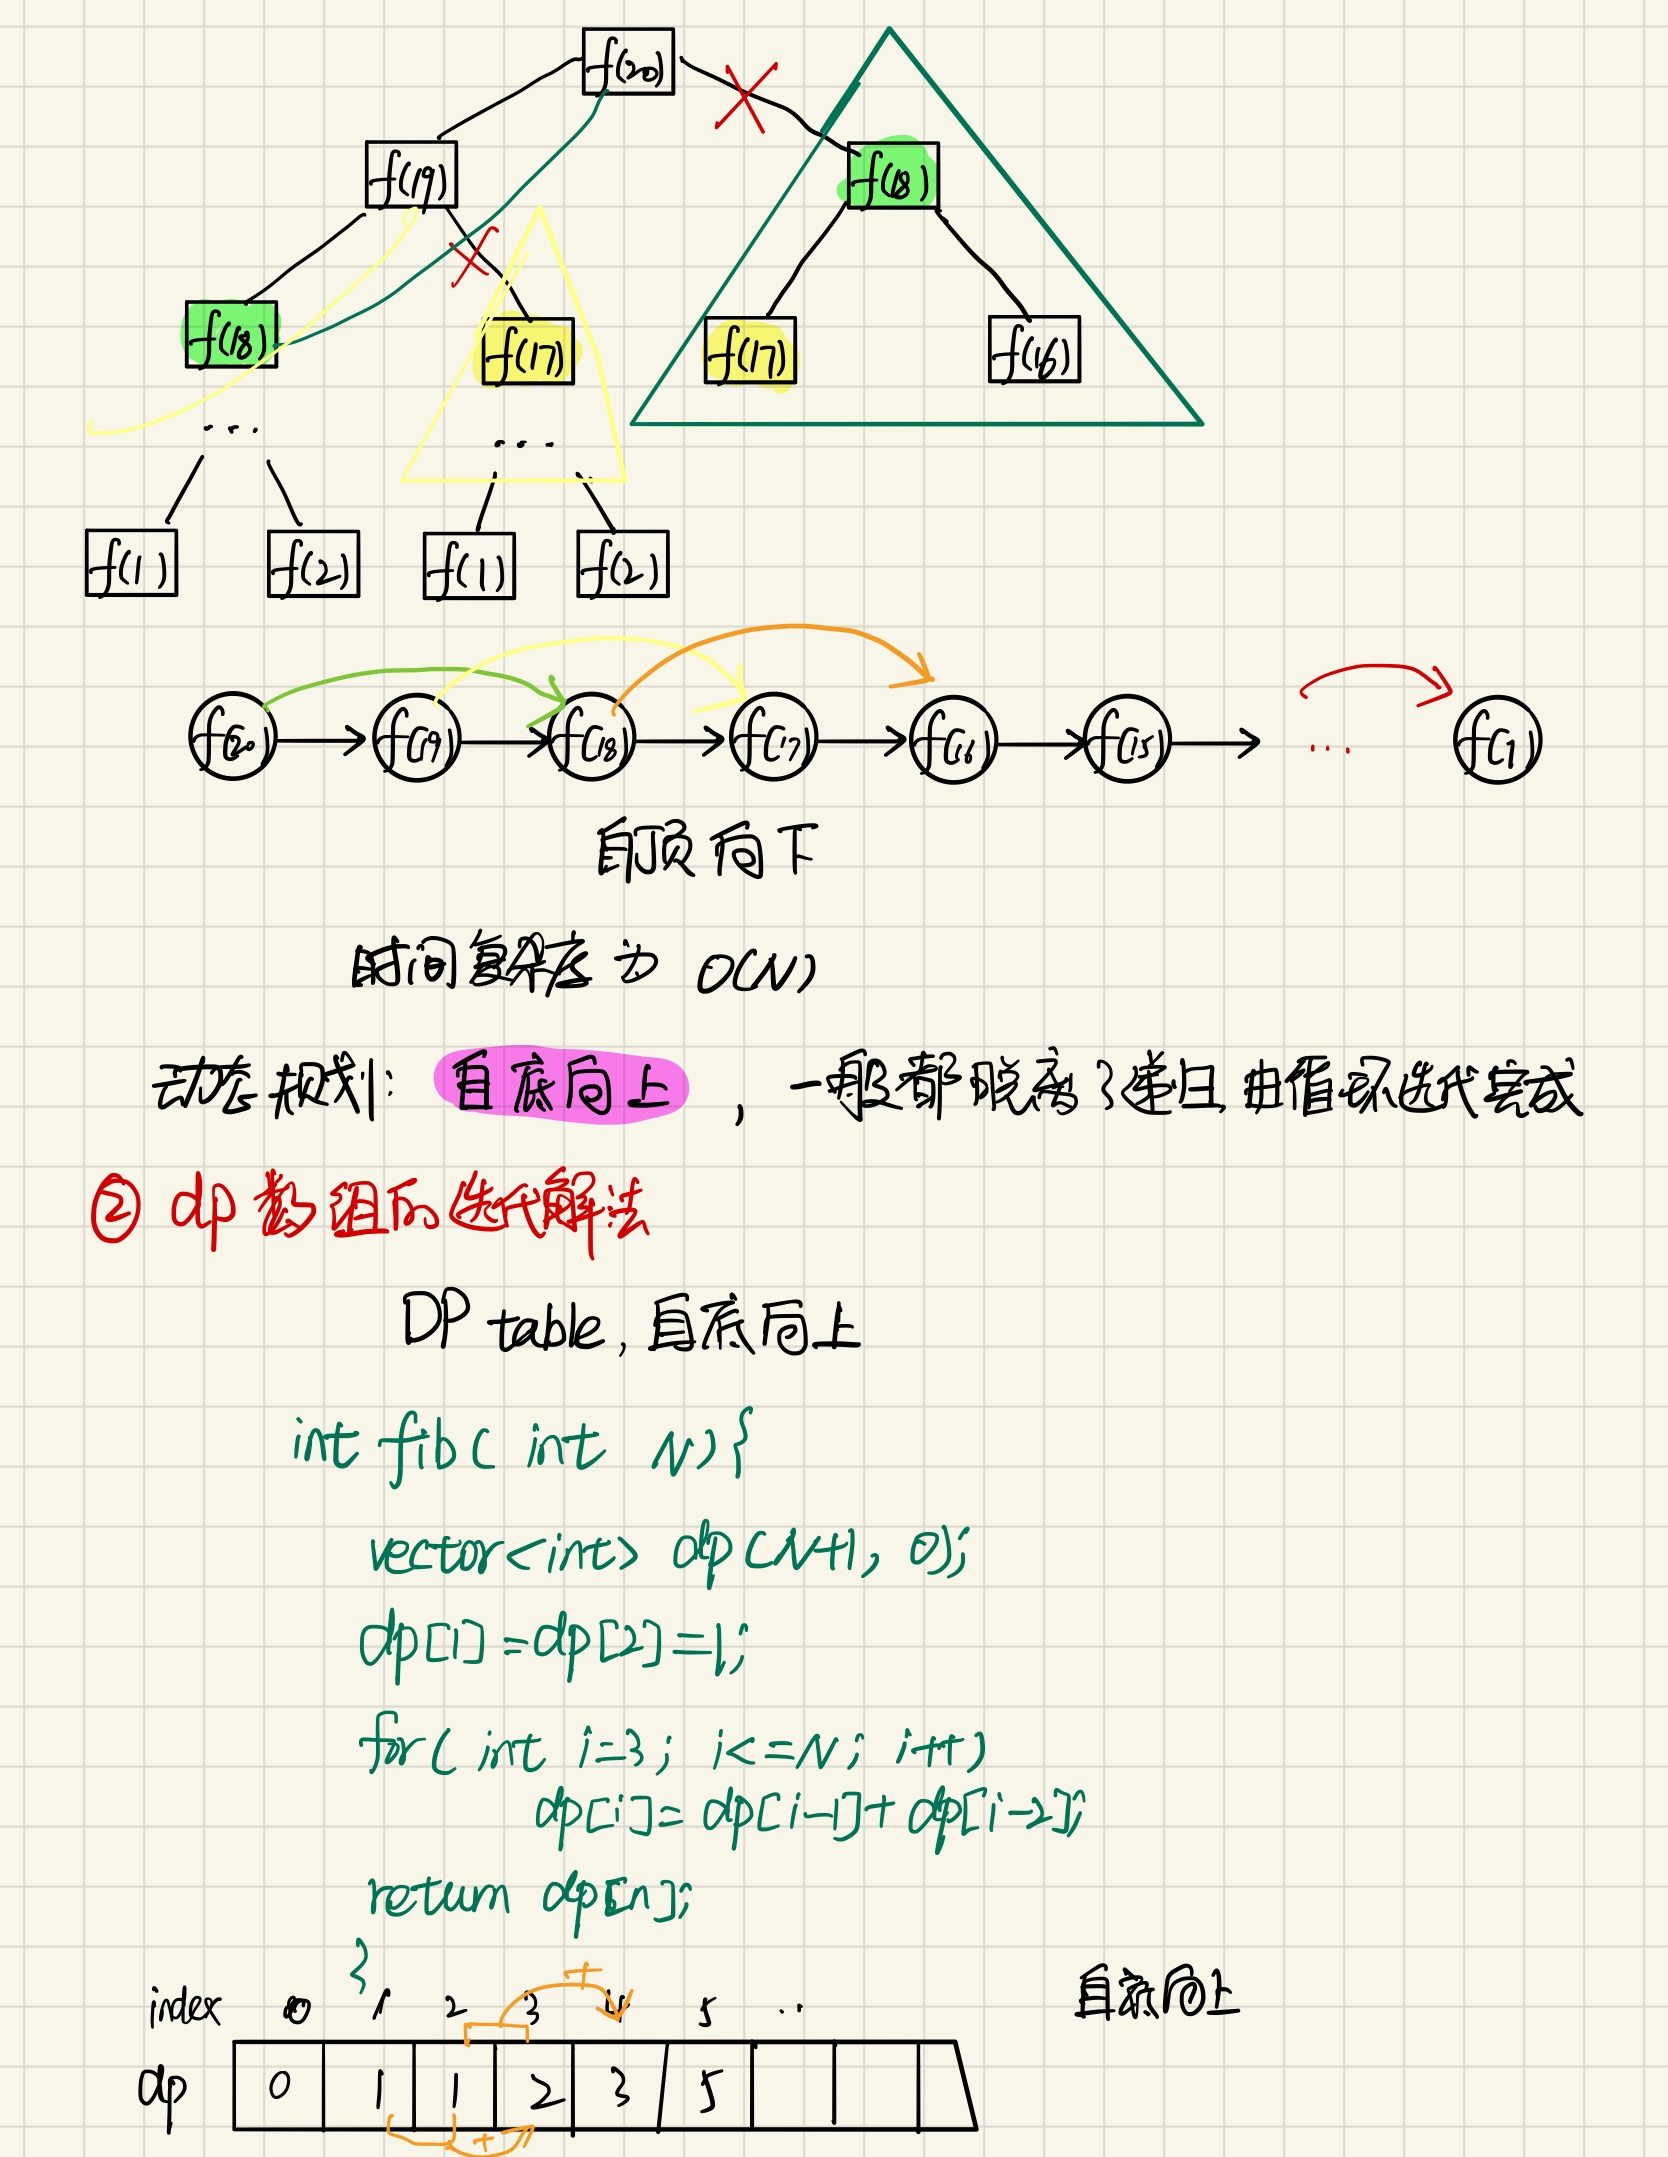 f(20)
f(19) f(18)
f(18) f(17) f(17) f(16)
... ...
f(1) f(2) f(1) f(2)
f(20) f(19) f(18) f(17) f(16) f(15) ... f(1)
自顶向下
时间复杂度为 O(N)
动态规划: 自底向上 , 一般都脱离了递归,由循环迭代完成
② dp数组的迭代解法
DP table, 自底向上
int fib( int N){
vector<int> dp(N+1, 0);
dp[1]=dp[2]=1;
for( int i=3; i<=N; i++)
dp[i]= dp[i-1]+dp[i-2];
return dp[n];
}
+
index 0 1 2 3 4 5 ..
自底向上
dp 0 1 1 2 3 5
+